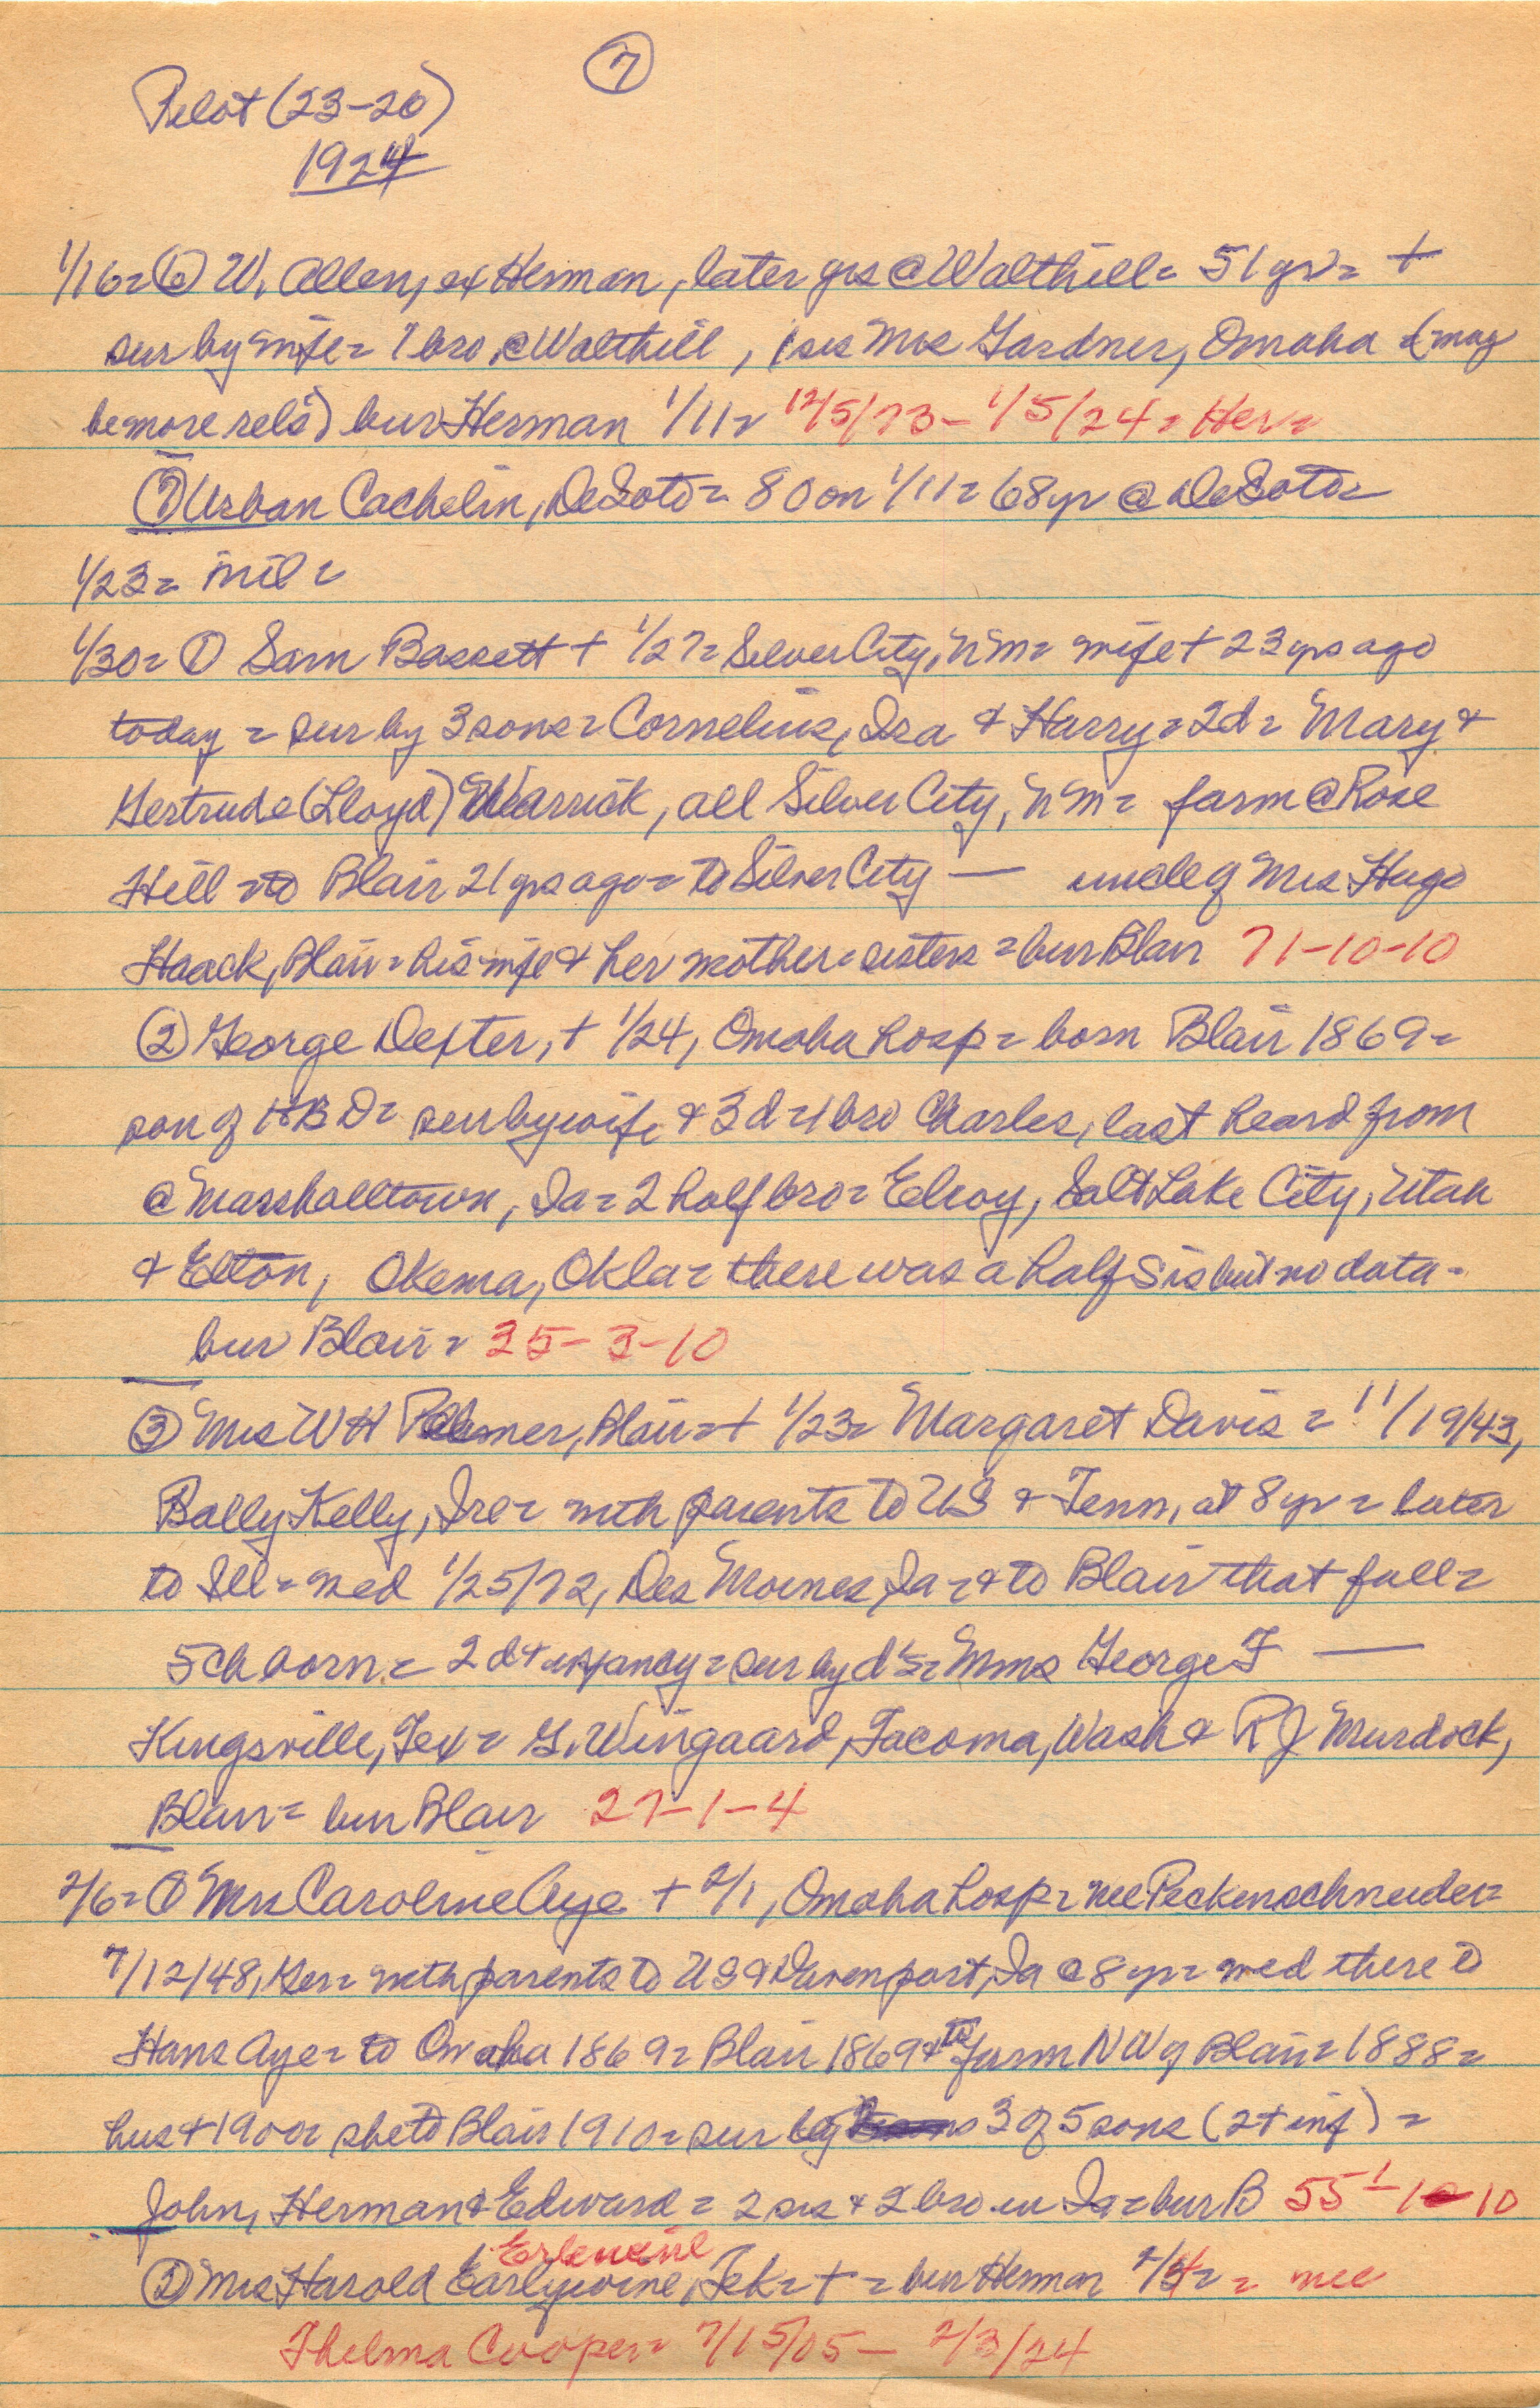 7
Pilot (23-26)
1924
1/16 = ⑥ W. Allen, ex Herman, later yrs @ Walthill = 51 yr = +
sur by wife = 1 bro @ Walthill, 1 sis Mrs Gardner, Omaha = (may
be more rels) bur Herman 1/11 = 12/5/73 - 1/5/24 = Her =
⑦ Urban Cachelin, DeSoto = 80 on 1/11 = 68 yr @ DeSoto =
1/23 = nil =
1/30 = ① Sam Bassett + 1/27 = Silver City, NM = wife + 23 yrs ago
today = sur by 3 sons = Cornelius, Ira & Harry = 2d = Mary &
Gertrude (Lloyd) Warrick, all Silver City, NM = farm @ Rose
Hill = to Blair 21 yrs ago = to Silver City — uncle of Mrs Hugo
Haack, Blair = his wife & her mother = sisters = bur Blair 71-10-10
② George Dexter, + 1/24, Omaha hosp = born Blair 1869 =
son of HB D = sur by wife & 3 d = 1 bro Charles, last heard from
@ Marshalltown, Ia = 2 half bro = Elroy, Salt Lake City, Utah
& Elton, Okema, Okla = there was a half sis but no data =
bur Blair = 35-3-10
③ Mrs WH Palmer, Blair = + 1/23 = Margaret Davis = 11/19/43,
Bally Kelly, Ire = with parents to US & Tenn, at 8 yr = later
to Ill = med 1/25/72, Des Moines, Ia = & to Blair that fall =
5 ch born = 2 d + infancy = sur by d's = Mms George F —
Kingsville, Tex = G. Wingaard, Tacoma, Wash & R J Murdock,
Blair = bur Blair 27-1-4
2/6 = ① Mrs Caroline Aye + 2/1, Omaha hosp = nee Peckenschneider =
7/12/48, Ger = with parents to US & Davenport, Ia @ 8 yr = med there to
Hans Aye = to Omaha 1869 = Blair 1869 & to farm NW of Blair = 1888 =
hus + 1900 = she to Blair 1910 = sur by 3 of 5 sons (2 + inf) =
John, Herman & Edward = 2 sis & 2 bro in Ia = bur B 55-1-10
Erlewine
② Mrs Harold Earlywine, Tek = + = bur Herman 2/4 = = nee
Thelma Cooper = 7/15/05 — 2/3/24